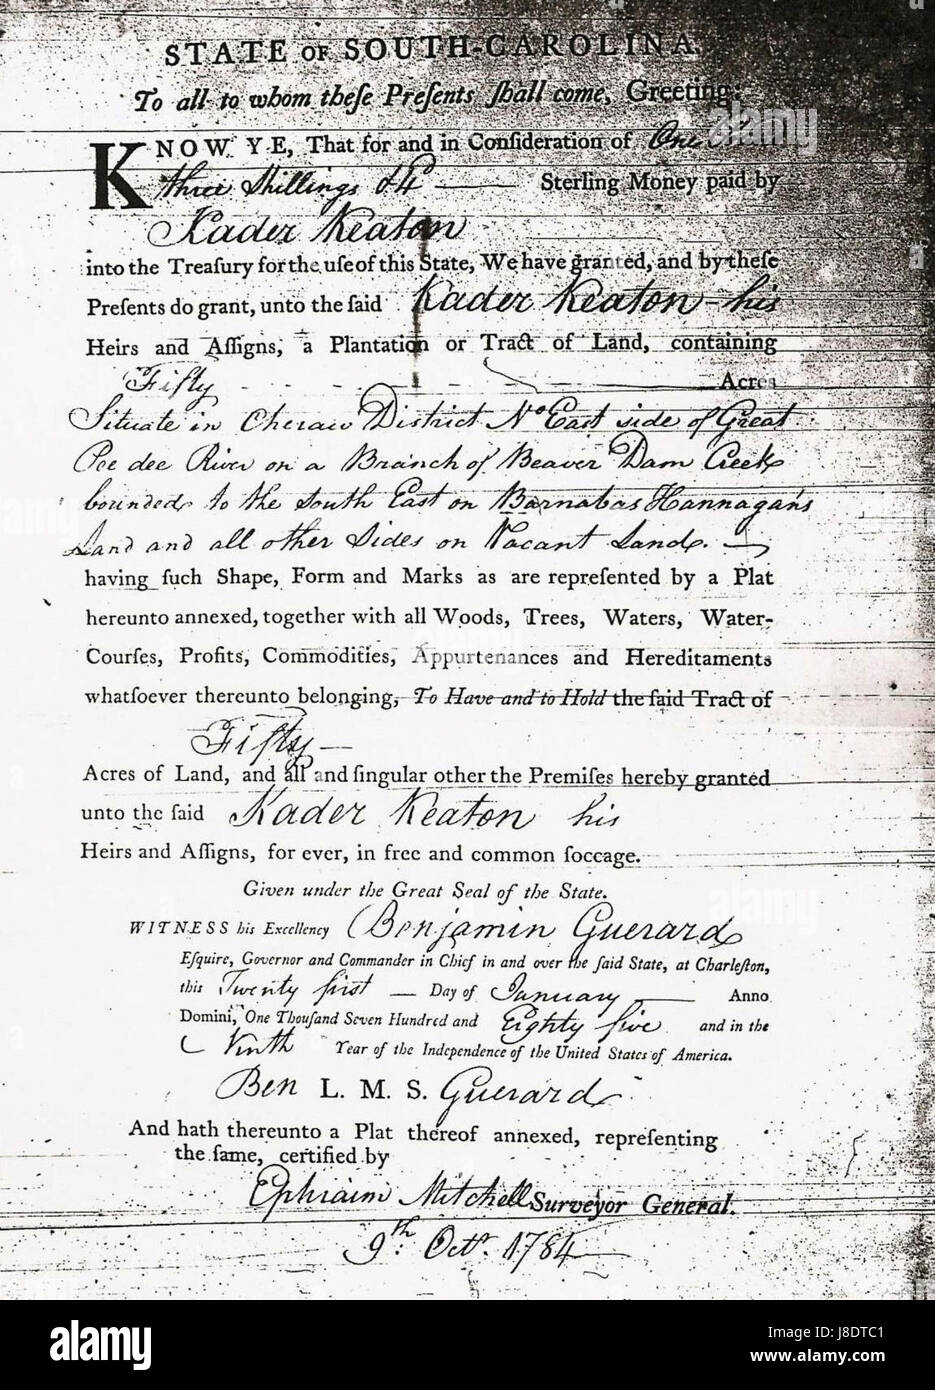 STATE OF SOUTH-CAROLINA.
To all to whom theſe Preſents ſhall come, Greeting:
KNOW YE, That for and in Conſideration of One
three Shillings & 4d Sterling Money paid by
Kader Keaton
into the Treaſury for the uſe of this State, We have granted, and by theſe
Preſents do grant, unto the ſaid Kader Keaton his
Heirs and Aſſigns, a Plantation or Tract of Land, containing
Fifty Acres
Situate in Cheraw District No East side of Great
Pee dee River on a Branch of Beaver Dam Creek
bounded to the South East on Barnabas Hannagan's
Land and all other Sides on Vacant Land.
having ſuch Shape, Form and Marks as are repreſented by a Plat
hereunto annexed, together with all Woods, Trees, Waters, Water-
Courſes, Profits, Commodities, Appurtenances and Hereditaments
whatſoever thereunto belonging, To Have and to Hold the ſaid Tract of
Fifty
Acres of Land, and all and ſingular other the Premiſes hereby granted
unto the ſaid Kader Keaton his
Heirs and Aſſigns, for ever, in free and common ſoccage.
Given under the Great Seal of the State.
WITNESS his Excellency Benjamin Guerard
Eſquire, Governor and Commander in Chief in and over the ſaid State, at Charleſton,
this Twenty first Day of January Anno
Domini, One Thouſand Seven Hundred and Eighty five and in the
Ninth Year of the Independence of the United States of America.
Ben L. M. S. Guerard
And hath thereunto a Plat thereof annexed, repreſenting
the ſame, certified by
Ephraim Mitchell Surveyor General.
9th. Octr. 1784
alamy
Image ID: J8DTC1
www.alamy.com